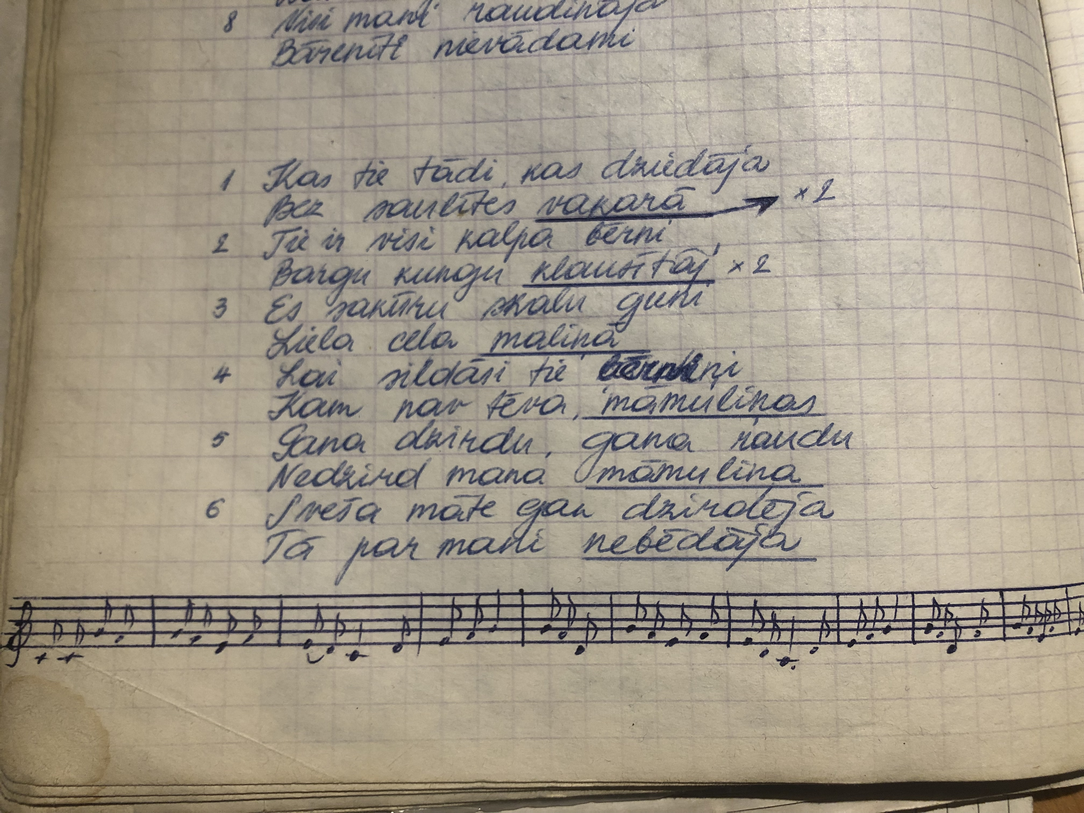 8 Visi mani raudināja
Bārenīti nievādami
1 Kas tie tādi, kas dziedāja
Bez saulītes vakarā → ×2
2 Tie ir visi kalpa bērni
Bargu kungu klausītāj' ×2
3 Es sakūru skalu guni
Liela ceļa maliņā
4 Lai sildāsi tie bērniņi
Kam nav tēva, māmuliņas
5 Gana dzirdu, gana raudu
Nedzird mana māmuliņa
6 Sveša māte gan dzirdēja
Tā par mani nebēdāja